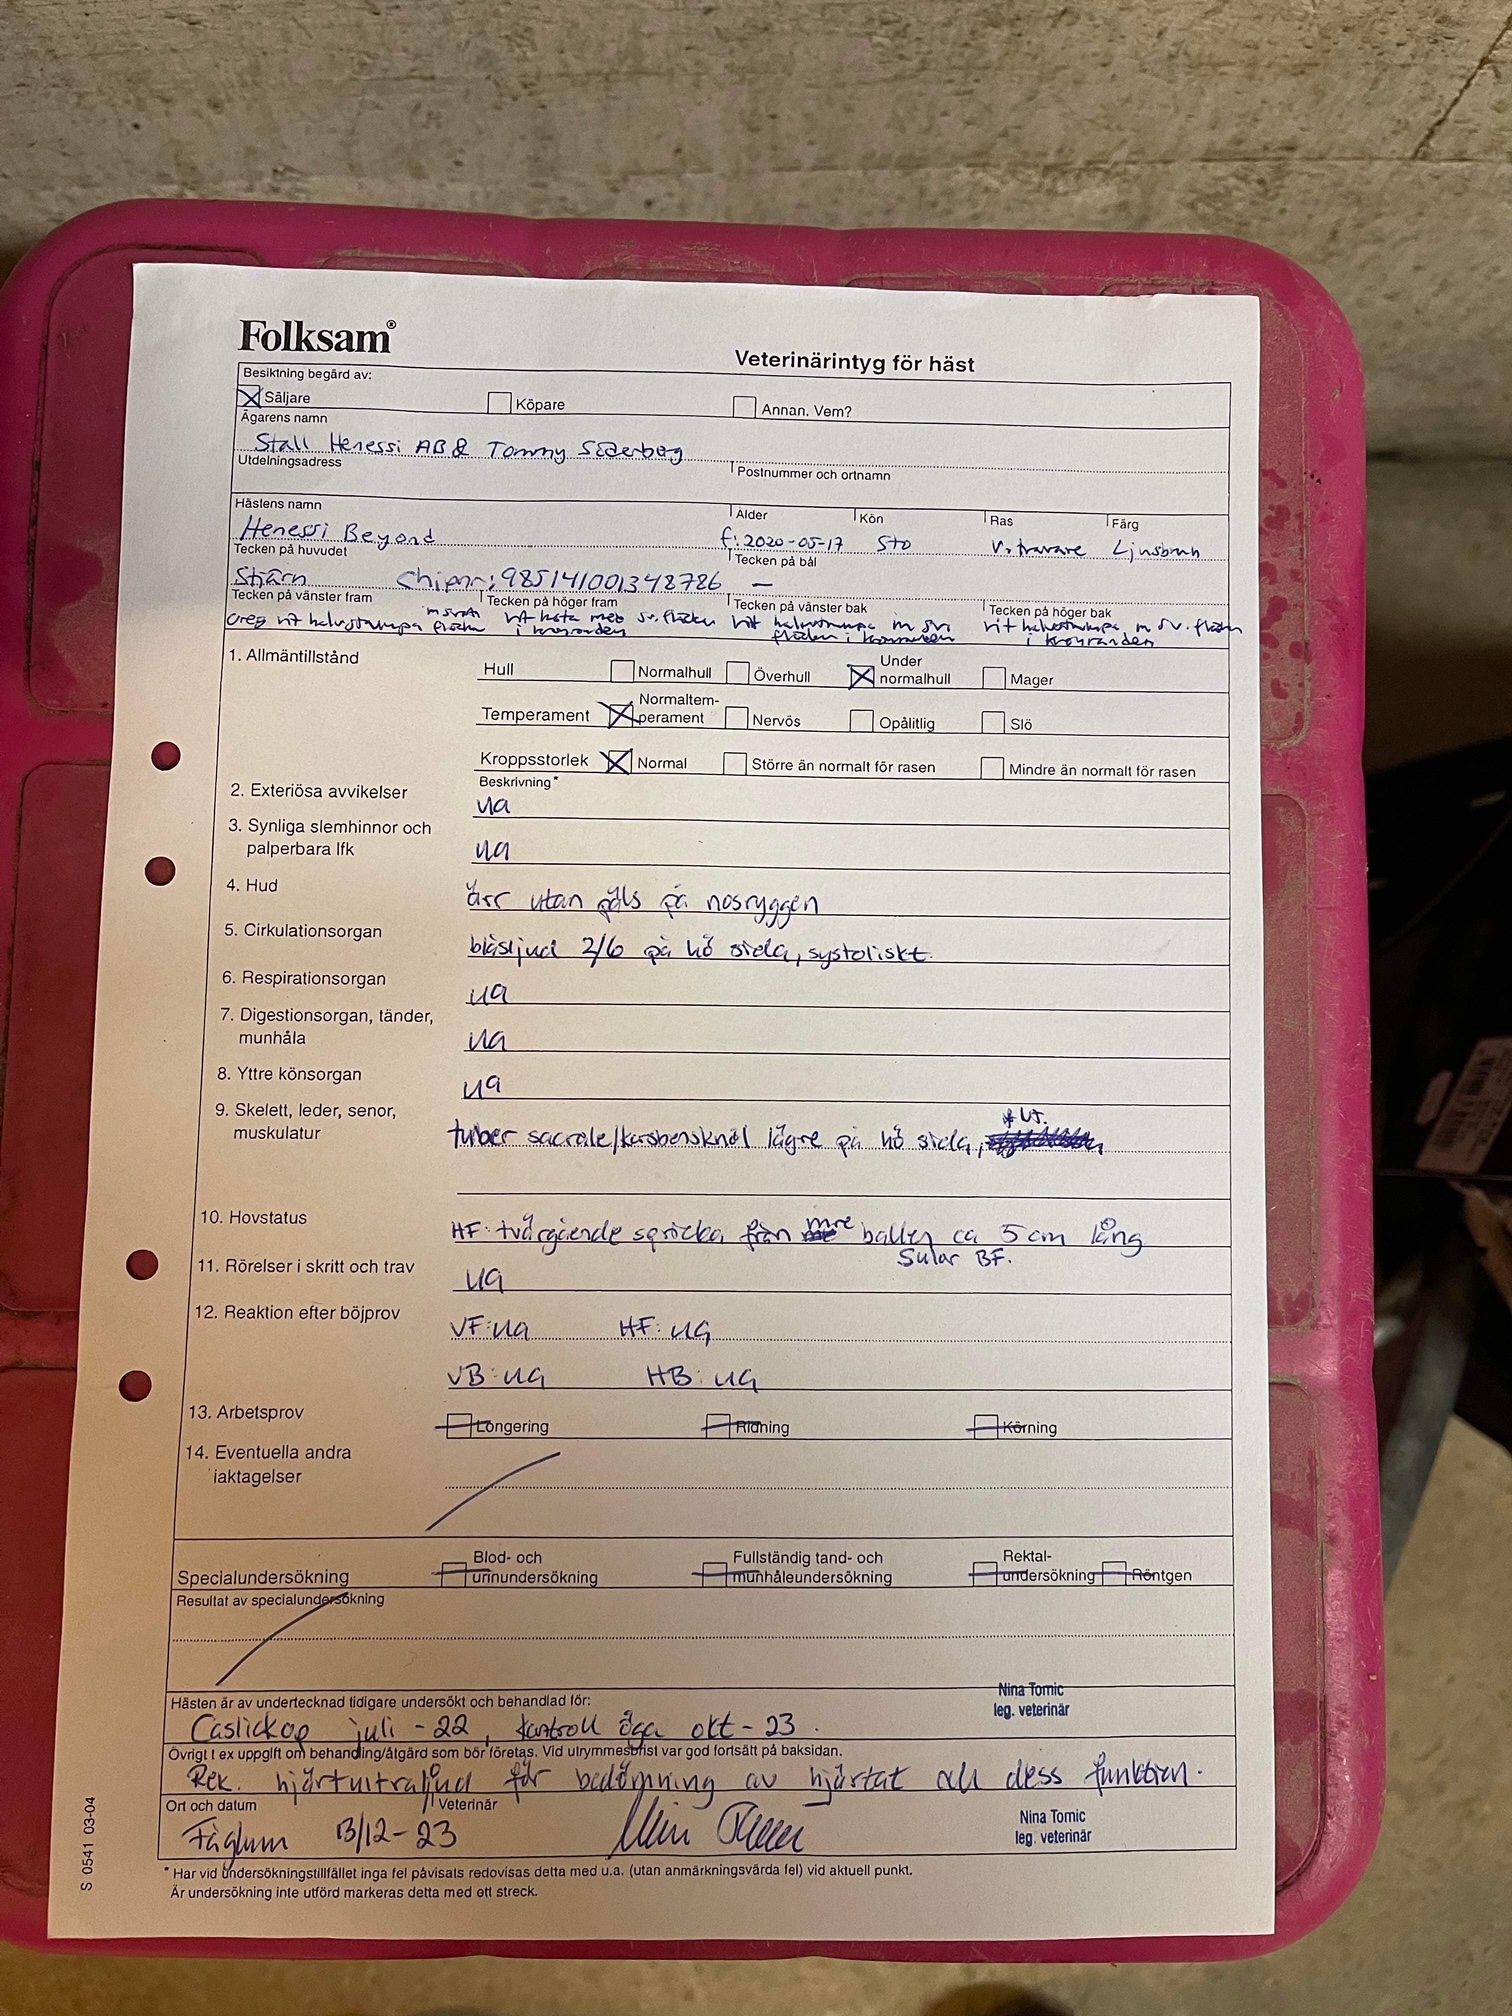 Folksam®
Veterinärintyg för häst
Besiktning begärd av:
Säljare Köpare Annan. Vem?
Ägarens namn
Stall Henessi AB & Tommy Söderberg
Utdelningsadress Postnummer och ortnamn
Hästens namn Ålder Kön Ras Färg
Henessi Beyond f: 2020-05-17 Sto V. travare Ljusbrun
Tecken på huvudet Tecken på bål
Stjärn Chipnr: 985141001348786 —
Tecken på vänster fram Tecken på höger fram Tecken på vänster bak Tecken på höger bak
oreg vit halvstrumpa m svarta fläckar vit kota med sv. fläckar vit halvstrumpa m sv. vit halvstrumpa m sv. fläckar
i kronranden fläckar i kronranden i kronranden
1. Allmäntillstånd
Hull Normalhull Överhull Under normalhull Mager
Temperament Normaltemperament Nervös Opålitlig Slö
Kroppsstorlek Normal Större än normalt för rasen Mindre än normalt för rasen
Beskrivning*
2. Exteriösa avvikelser ua
3. Synliga slemhinnor och
palperbara lfk ua
4. Hud ärr utan päls på nosryggen
5. Cirkulationsorgan blåsljud 2/6 på hö sida, systoliskt.
6. Respirationsorgan ua
7. Digestionsorgan, tänder,
munhåla ua
8. Yttre könsorgan ua
9. Skelett, leder, senor,
muskulatur tuber sacrale/korsbensknöl lägre på hö sida,
10. Hovstatus HF: tvärgående spricka från mre ballen ca 5 cm lång
Sular BF.
11. Rörelser i skritt och trav ua
12. Reaktion efter böjprov VF: ua HF: ua
VB: ua HB: ua
13. Arbetsprov Longering Ridning Körning
14. Eventuella andra
iaktagelser
Specialundersökning Blod- och urinundersökning Fullständig tand- och munhåleundersökning Rektalundersökning Röntgen
Resultat av specialundersökning
Hästen är av undertecknad tidigare undersökt och behandlad för:
Nina Tomic
leg. veterinär
Caslickop juli -22, kontroll öga okt-23.
Övrigt t ex uppgift om behandling/åtgärd som bör företas. Vid utrymmesbrist var god fortsätt på baksidan.
Rek. hjärtultraljud för bedömning av hjärtat och dess funktion.
Ort och datum Veterinär
Fåglum 13/12-23
Nina Tomic
leg. veterinär
* Har vid undersökningstillfället inga fel påvisats redovisas detta med u.a. (utan anmärkningsvärda fel) vid aktuell punkt.
Är undersökning inte utförd markeras detta med ett streck.
S 0541 03-04